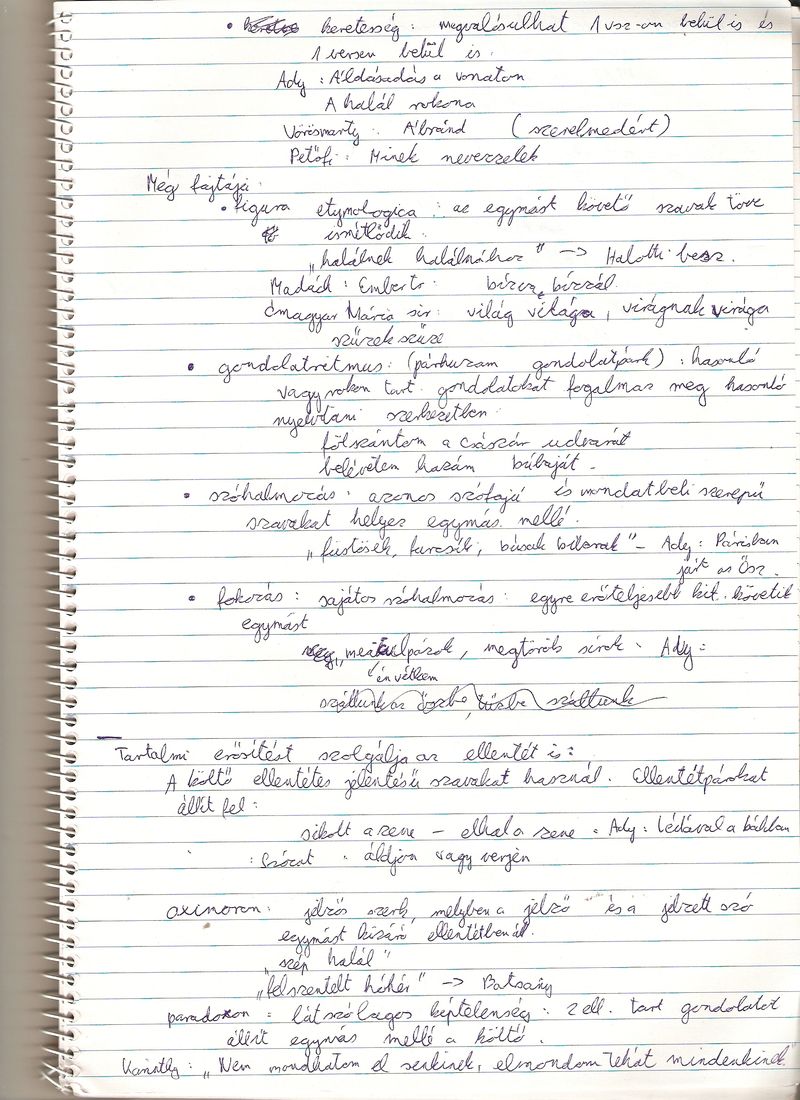 • keretesség : megvalósulhat 1 vsz-on belül is és
1 versen belül is.
Ady : Áldásadás a vonaton
A halál rokona
Vörösmarty : Ábránd ( szerelmedért )
Petőfi : Minek nevezzelek
Még fajtája :
• figura etymologica : az egymást követő szavak töve
ismétlődik.
„halálnek halálnához" –> Halotti besz.
Madách : Embertr. bízva bízzál.
Ómagyar Mária sir : világ világa, virágnak virága
szűzek szűze
• gondolatritmus : (párhuzam gondolatpárh) : hasonló
vagy rokon tart. gondolatokat fogalmaz meg hasonló
nyelvtani szerkezetben.
fölszántom a császár udvarát
belévetem hazám búbaját.
• szóhalmozás : azonos szófajú és mondatbeli szerepű
szavakat helyez egymás mellé.
„füstösek, furcsák, búsak bíborak" – Ady : Párisban
járt az Ősz.
• fokozás : sajátos szóhalmozás : egyre erőteljesebb kif. követik
egymást
megtörök sírok. Ady :
én vétkem
szálltunk az őszbe, űzőbe szálltunk
Tartalmi erősítést szolgálja az ellentét is :
A költő ellentétes jelentésű szavakat használ. Ellentétpárokat
állít fel :
sikolt a zene – elhal a zene. Ady : Lédával a bálban
: Szózat : áldjon vagy verjen
oximoron : jelzős szerk, melyben a jelző és a jelzett szó
egymást kizáró ellentétben áll.
„szép halál"
„felszentelt hóhér" –> Batsányi
paradoxon = látszólagos képtelenség : 2 ell. tart gondolatot
állít egymás mellé a költő.
Karinthy : „Nem mondhatom el senkinek, elmondom tehát mindenkinek."